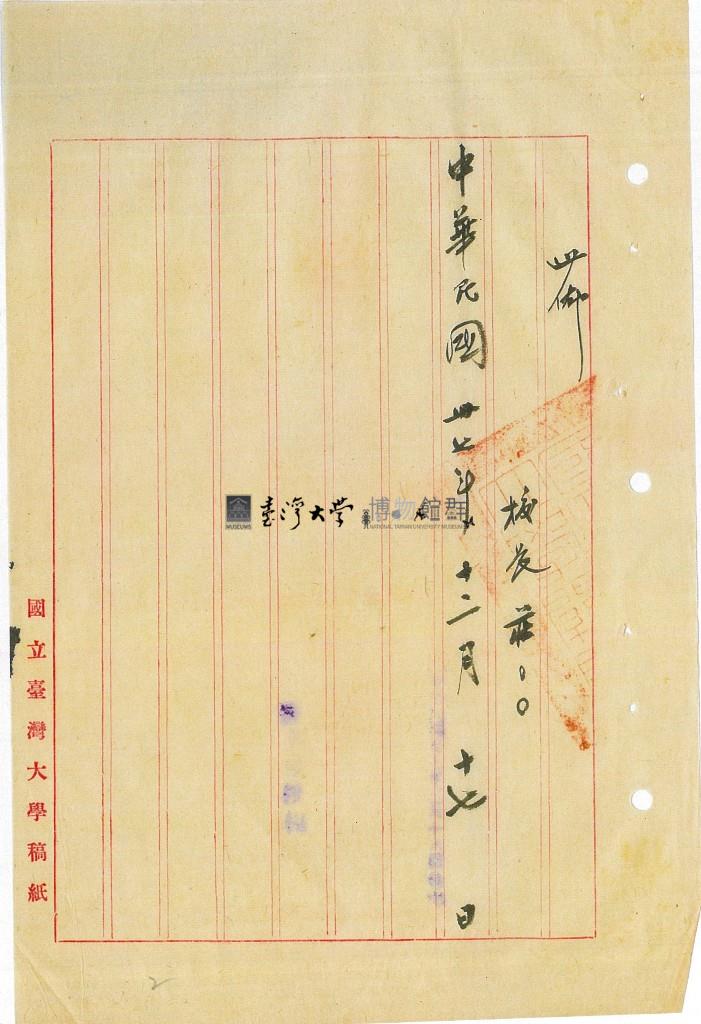 此佈
校長 莊○○
中華民國卅七年十二月十七日
國立臺灣大學稿紙
MUSEUMS
臺灣大學
博物館群
NATIONAL TAIWAN UNIVERSITY MUSEUMS
2